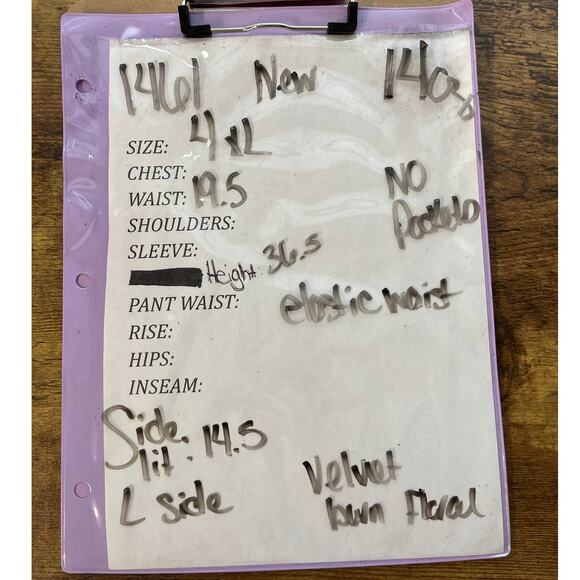 1461 New 14oz
SIZE: 4XL
CHEST:
WAIST: 19.5
NO
Pockets
SHOULDERS:
SLEEVE:
Height: 36.5
PANT WAIST: elastic waist
RISE:
HIPS:
INSEAM:
Side
lit: 14.5
L Side
Velvet
burn Floral